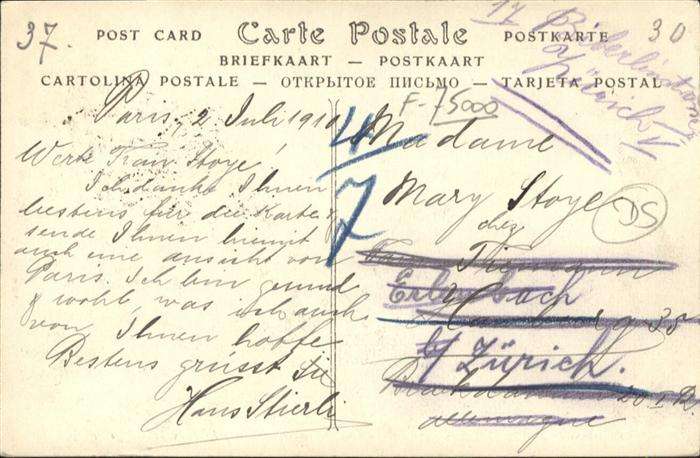 37.
30
POST CARD Carte Postale POSTKARTE
BRIEFKAART — POSTKAART
CARTOLINA POSTALE — ОТКРЫТОЕ ПИСЬМО — TARJETA POSTAL
17
Zürich V
F-75000
Paris, 2 Juli 1910
Werte Frau Stoye!
Ich danke Ihnen
bestens für die Karte &
sende Ihnen hiemit
auch eine ansicht von
Paris. Ich bin gesund
& wohl, was ich auch
von Ihnen hoffe
Bestens grüsst Sie
Hans Stierli
4
7
Madame
Mary Stoye
DS
chez
Tiemann
Erlenbach
Hamburg 35
b/ Zürich.
allemagne